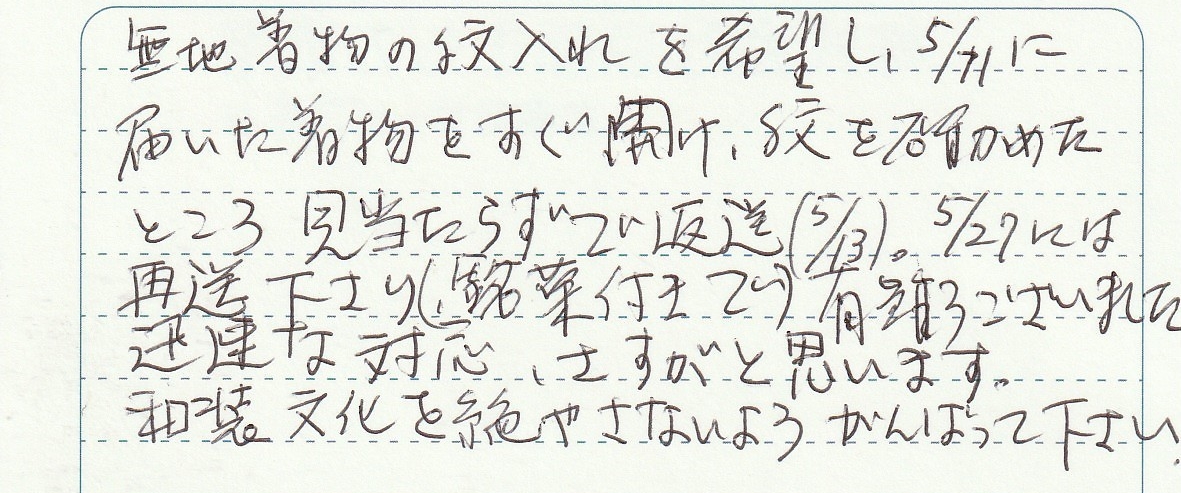 無地着物の紋入れを希望し、5/11に
届いた着物をすぐ開け、紋を確かめた
ところ見当たらずで返送(5/13)。5/27には
再送下さり(銘菓付きで)有難うございました
迅速な対応、さすがと思います。
和装文化を絶やさないようがんばって下さい.